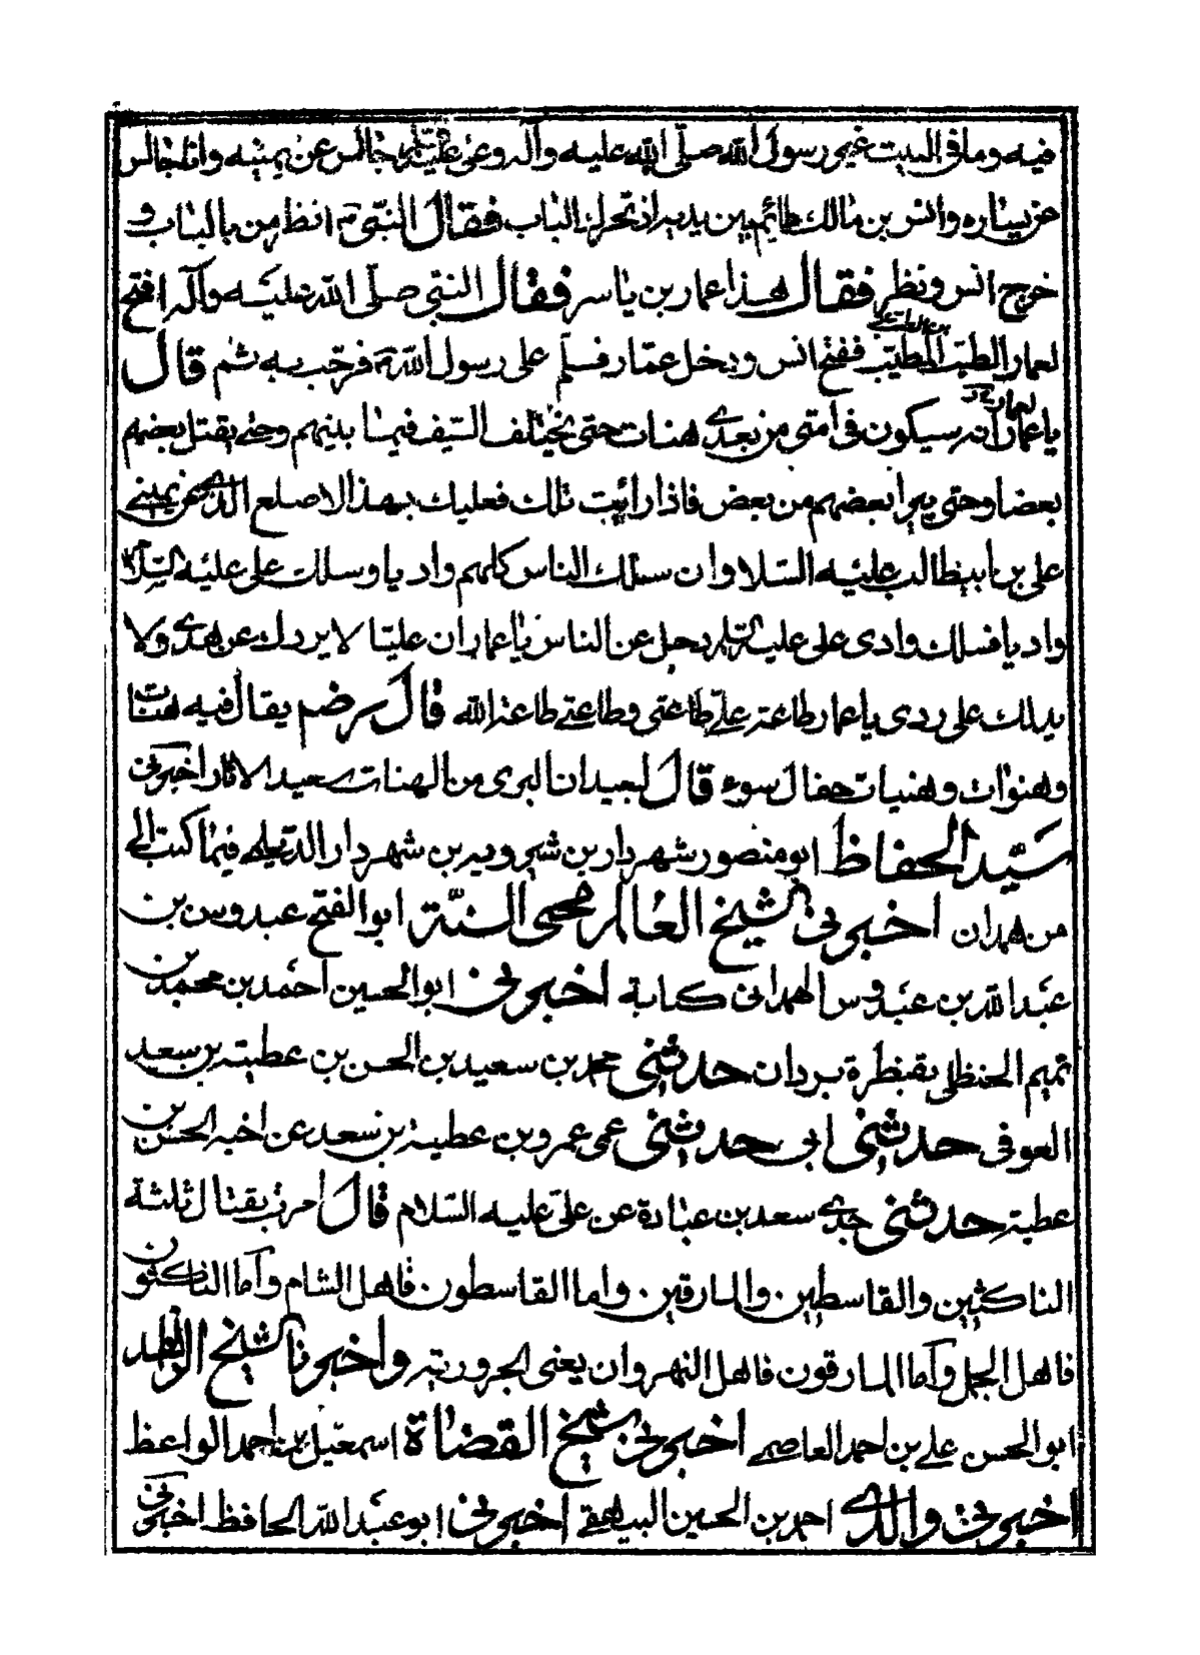 فيه وما فى البيت غير رسول الله صلّى الله عليه وآله وعلى عليه السلم جالس عن يمينه وانا جالس
عن يساره وانس بن مالك قائم بين يديه اذ تحرك الباب فقال النّبىّ انظر من بالباب و
خرج انس ونظر فقال هذا عمار بن ياسر فقال النبّى صلّى الله عليه وآله افتح
لعمار الطيّب المطيّب ففتح انس ودخل عمّار فسلّم على رسول الله فرحّب به ثم قال
يا عمار انه سيكون فى امتى من بعدى هنات حتى يختلف السّيف فيما بينهم وحتى يقتل بعضهم
بعضا وحتى يبرأ بعضهم من بعض فاذا رايت ذلك فعليك بهذا الاصلع الذى عن يمينى
على بن ابيطالب عليه السّلام وان سلك الناس كلهم واديا وسلك على عليه السّلام
واديا فسلك وادى على عليه السّلام وخل عن الناس يا عمار ان عليّا لا يردك عن هدى ولا
يدلك على ردى يا عمار طاعة علىّ طاعتى وطاعتى طاعة الله قال رضه يقال فيه هنات
وهنوات وهنيات خصال سوء قال لبيد ان البرى من الهنات سعيد الاثار اخبرنى
سيّد الحفاظ ابو منصور شهردار بن شيرويه بن شهردار الدّيلمى فيما كتب الى
من همدان اخبرنى الشيخ العالم محيى السنّة ابو الفتح عبدوس بن
عبد الله بن عبدوس الهمدانى كتابة اخبرنى ابو الحسين احمد بن محمد بن
تميم الحنظلى بقنطرة بردان حدثنى محمد بن سعيد بن الحسن بن عطيّة بن سعد
العوفى حدثنى ابى حدثنى عمى عمرو بن عطية بن سعد عن اخيه الحسن بن
عطية حدثنى جدى سعد بن عبادة عن علىّ عليه السّلام قال امرت بقتال ثلثة
الناكثين والقاسطين والمارقين واما القاسطون فاهل الشام وأما الناكثون
فاهل الجمل وأما المارقون فاهل النهروان يعنى الحرورية واخبرنا الشيخ الزاهد
ابو الحسن على بن احمد العاصمى اخبرنى شيخ القضاة اسمعيل بن احمد الواعظ
اخبرنى والدى احمد بن الحسين البيهقى اخبرنى ابو عبد الله الحافظ اخبرنى